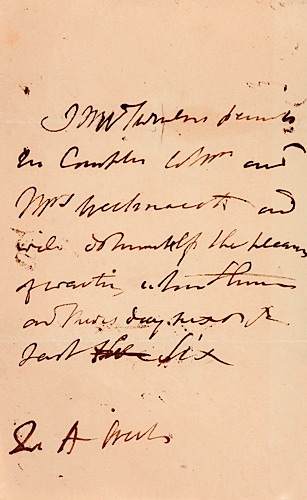 J M W Turner presents
his Compts to Mr and
Mrs and
will do himself the pleasure
of waiting upon them
on Thursday next at
half the Six
Qu A